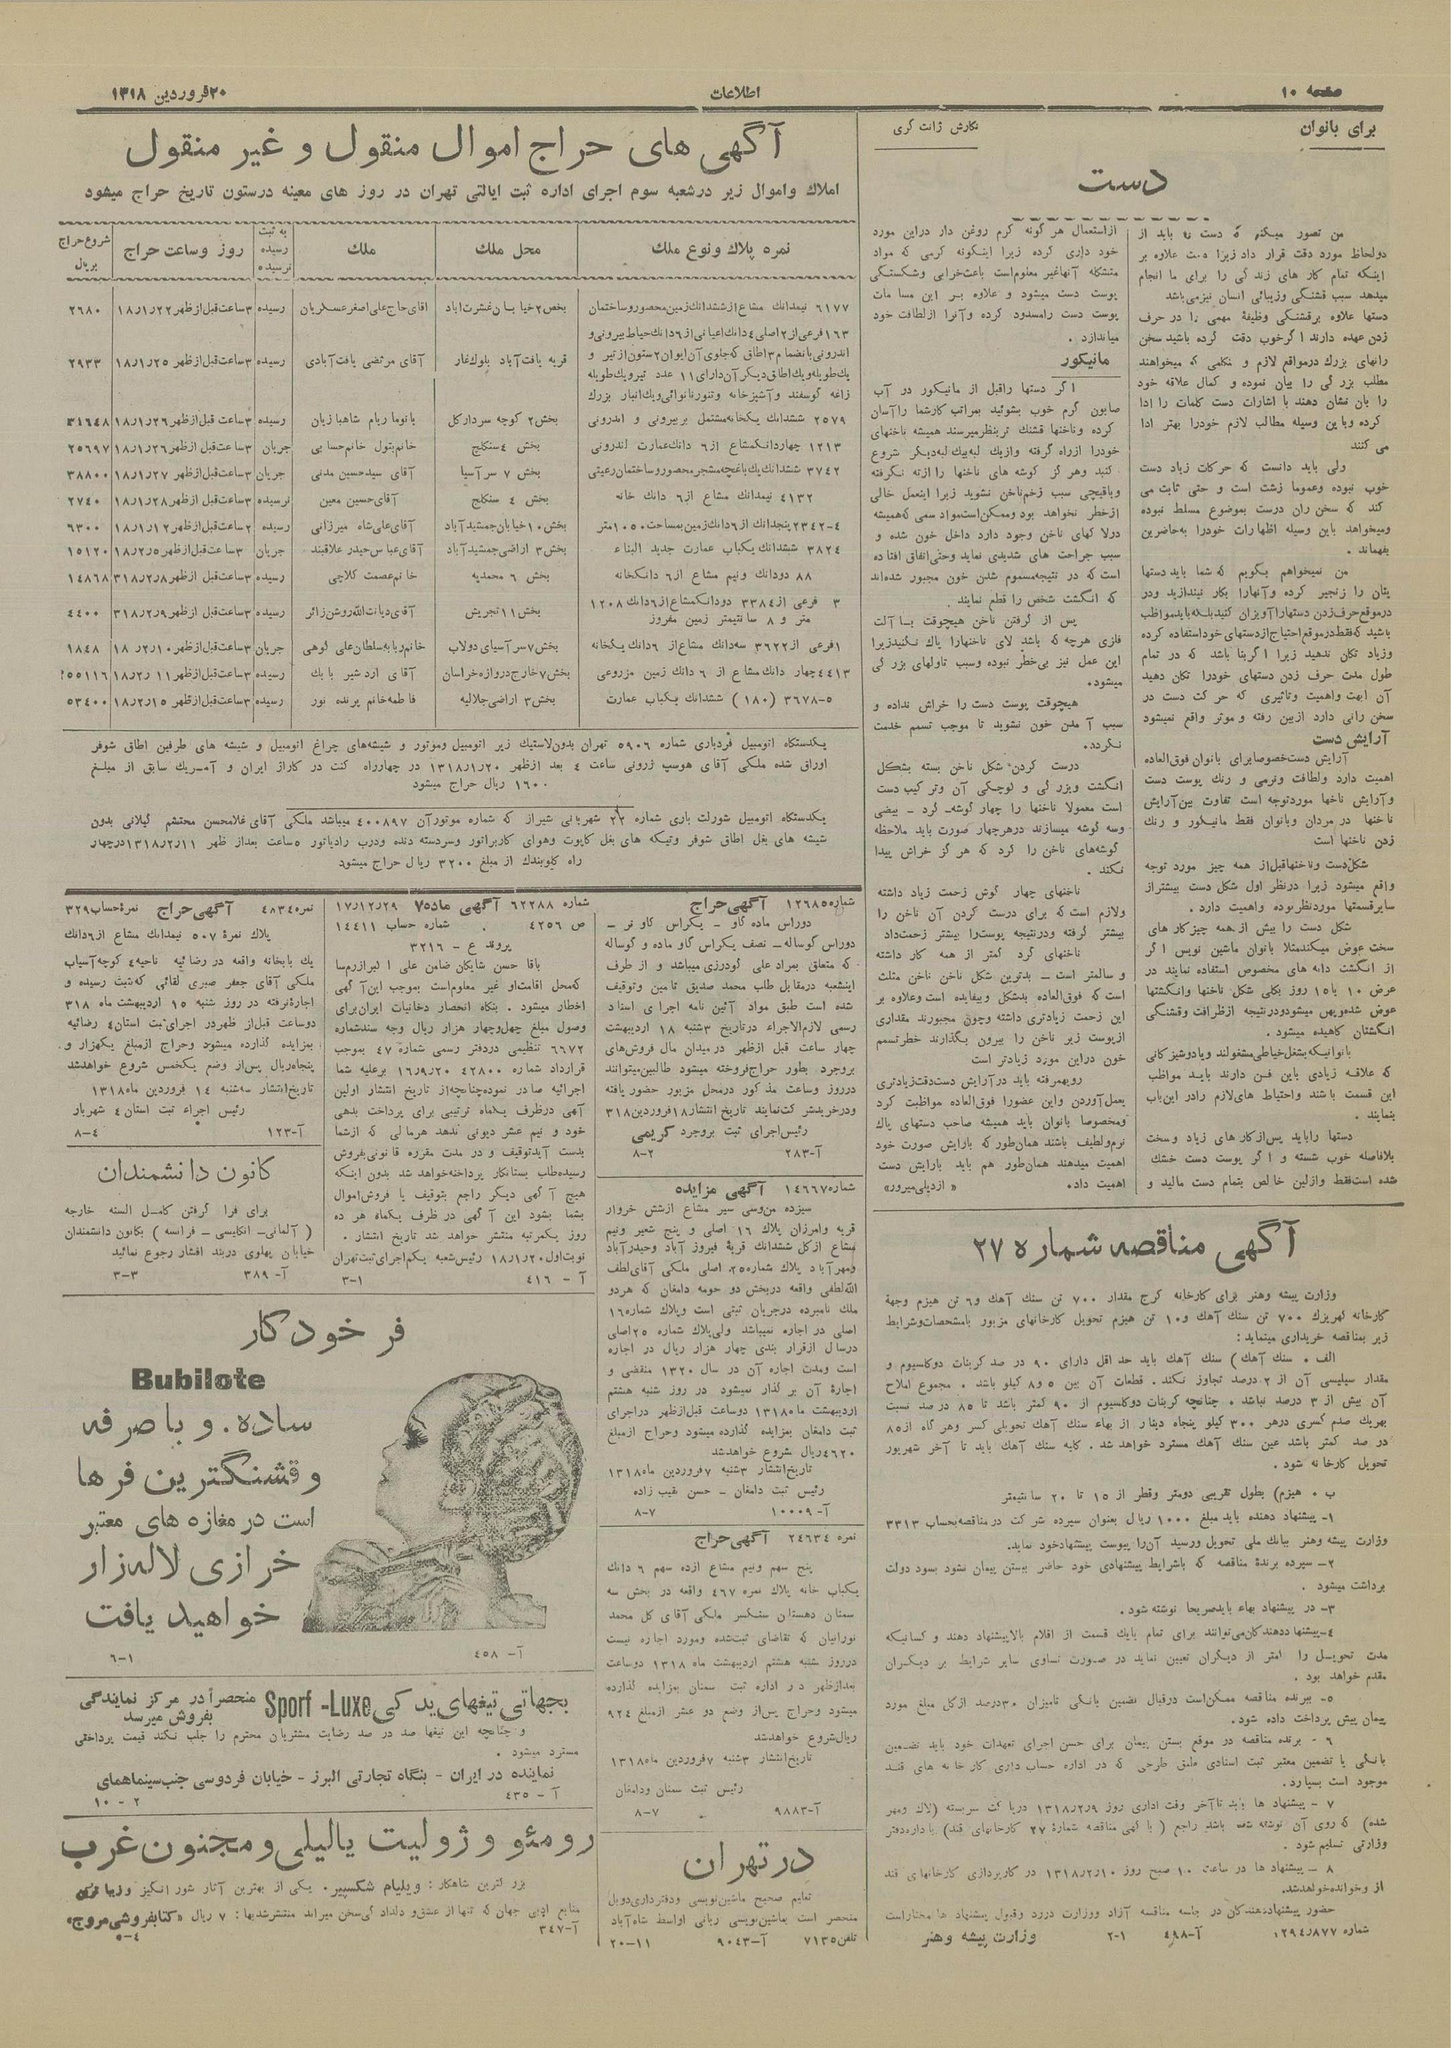 صفحه ۱۰
اطلاعات
۲۰ فروردین ۱۳۱۸
برای بانوان
نگارش ژانت گری
دست
من تصور میکنم که دست را باید از
دولحاظ مورد دقت قرار داد زیرا دست علاوه بر
اینکه تمام کار های زندگی را برای ما انجام
میدهد سبب قشنگی وزیبائی انسان نیزمی‌باشد
دستها علاوه برقشنگی وظیفهٔ مهمی را در حرف
زدن عهده دارند اگرخوب دقت کرده باشید سخن
رانهای بزرك درمواقع لازم و هنگامی که میخواهند
مطلب بزرگی را بیان نموده و کمال علاقه خود
را بان نشان دهند با اشارات دست کلمات را ادا
کرده وباین وسیله مطالب لازم خودرا بهتر ادا
می کنند
ولی باید دانست که حرکات زیاد دست
خوب نبوده وعموما زشت است و حتی ثابت می
کند که سخن ران درست بموضوع مسلط نبوده
ومیخواهد باین وسیله اظهارات خودرا به‌حاضرین
بفهماند .
من نمیخواهم بگویم که شما باید دستها
یتان را زنجیر کرده وآنهارا بکار نیندازید ودر
درموقع حرف‌زدن دستهارا آویزان کنید بلکه باید مواظب
باشید که‌فقط درموقع احتیاج ازدستهای خوداستفاده کرده
وزیاد تکان ندهید زیرا اگربنا باشد که در تمام
طول مدت حرف زدن دستهای خودرا تکان دهید
آن ابهت واهمیت وتاثیری که حرکت دست در
سخن رانی دارد ازبین رفته و موثر واقع نمیشود
آرایش دست
آرایش دست‌خصوصا برای بانوان فوق‌العاده
اهمیت دارد ولطافت ونرمی و رنك پوست دست
وآرایش ناخنها موردتوجه است تفاوت بین‌آرایش
ناخنها در مردان وبانوان فقط مانیکور و رنك
زدن ناخنها است
شکل‌دست وناخنهاقبل‌از همه چیز مورد توجه
واقع میشود زیرا درنظر اول شکل دست بیشتراز
سایرقسمتها موردنظربوده واهمیت دارد .
شکل دست را بیش از همه چیز کار های
سخت عوض میکندمثلا بانوان ماشین نویس اگر
از انگشت دانه های مخصوص استفاده نمایند در
عرض ۱۰ یا۱۵ روز بکلی شکل ناخنها وانگشتها
عوض شده‌وپهن میشودودرنتیجه ازظرافت وقشنگی
انگشتان کاهیده میشود .
بانوانیکه بشغل‌خیاطی‌مشغولند ویادوشیزگانی
که علاقه زیادی باین فن دارند باید مواظب
این قسمت باشند واحتیاط های‌لازم رادر این‌باب
بنمایند .
دستها راباید پس‌ازکار های زیاد وسخت
بلافاصله خوب شسته و اگر پوست دست خشك
شده است‌فقط وازلین خالص بتمام دست مالید و
ازاستعمال هر گونه کرم روغن دار دراین مورد
خود داری کرده زیرا اینگونه کرمی که مواد
متشکله آنهاغیر معلوم‌است باعث‌خرابی وشکستگی
پوست دست میشود و علاوه بر این مسامات
پوست دست رامسدود کرده وآنرا ازلطافت خود
میاندازد .
مانیکور
اگر دستها راقبل از مانیکور در آب
صابون گرم خوب بشوئید بمراتب کارشما راآسان
کرده وناخنها قشنك تربنظرمیرسند همیشه ناخنهای
خودرا ازراه گرفته وازیك لبه‌بیك لبه‌دیگر شروع
کنید وهرگز گوشه های ناخنها را ازته نگرفته
وباقیچی سبب زخم‌ناخن نشوید زیرا اینعمل خالی
ازخطر نخواهد بود وممکن‌است‌مواد سمی که‌همیشه
درلا کهای ناخن وجود دارد داخل خون شده و
سبب جراحت های شدیدی نماید وحتی‌اتفاق افتاده
است که در نتیجه‌مسموم شدن خون مجبور شده‌اند
که انگشت شخص را قطع نمایند .
پس از گرفتن ناخن هیچوقت با آلت
فلزی هرچه که باشد لای ناخنهارا پاك نکنیدزیرا
این عمل نیز بی‌خطر نبوده وسبب تاولهای بزرگی
میشود.
هیچوقت پوست دست را خراش نداده و
سبب آمدن خون نشوید تا موجب تسمم خدمت
نگردد.
درست کردن شکل ناخن بسته بشکل
انگشت وبزرگی و کوچکی آن وترکیب دست
است معمولا ناخنها را چهار گوشه- گرد - بیضی
وسه گوشه میسازند درهرچهار صورت باید ملاحظه
گوشه‌های ناخن را کرد که هرگز خراش پیدا
نکند .
ناخنهای چهار گوش زحمت زیاد داشته
ولازم است‌که برای درست کردن آن ناخن را
بیشتر گرفته ودرنتیجه پوست‌را بیشتر زحمت‌داد
ناخنهای گرد کمتر از همه کار داشته
و سالمتر است - بدترین شکل ناخن ناخن مثلث
است که فوق‌العاده بدشکل وبیفایده است‌وعلاوه بر
این زحمت زیادتری داشته وچون مجبورند مقداری
ازپوست زیر ناخن را بیرون بگذارند خطرتسمم
خون دراین مورد زیادتر است
رویهمرفته باید در آرایش دست‌دقت‌زیادتری
بعمل‌آوردن واین عضورا فوق‌العاده مواظبت کرد
ومخصوصا بانوان باید همیشه صاحب دستهای پاك
نرم‌ولطیف باشند همان‌طور که بارایش صورت خود
اهمیت میدهند همان‌طور هم باید بارایش دست
اهمیت داد. « ازدیلی‌میرور»
آگهی مناقصه شماره ۲۷
وزارت پیشه وهنر برای کارخانه کرج مقدار ۷۰۰ تن سنك آهك و۶ تن هیزم وجهة
کارخانه کهریزك ۷۰۰ تن سنك آهك و۱۰ تن هیزم تحویل کارخانهای مزبور بامشخصات‌وشرایط
زیر بمناقصه خریداری مینماید :
الف . سنك آهك) سنك آهك باید حد اقل دارای ۹۰ در صد کربنات دوکلسیوم و
مقدار سیلیسی آن از ۲ درصد تجاوز نکند . قطعات آن بین ۵ و۸ کیلو باشد . مجموع املاح
آن بیش از ۳ درصد نباشد . چنانچه کربنات دوکلسیوم از ۹۰ کمتر باشد تا ۸۵ در صد نسبت
بهریك صدم کسری درهر ۳۰۰ کیلو پنجاه دینار از بهاء سنك آهك تحویلی کسر وهر گاه از۸۵
در صد کمتر باشد عین سنك آهك مسترد خواهد شد . کلیه سنك آهك باید تا آخر شهریور
تحویل کارخانه شود .
ب . هیزم) بطول تقریبی دومتر وقطر از ۱۵ تا ۲۰ سانتیمتر
۱- پیشنهاد دهنده باید مبلغ ۱۰۰۰ ریال بعنوان سپرده شرکت در مناقصه بحساب ۳۳۱۳
وزارت پیشه وهنر ببانك ملی تحویل ورسید آن‌را پیوست پیشنهادخود نماید.
۲- سپرده برندهٔ مناقصه که باشرایط پیشنهادی خود حاضر ببستن پیمان نشود بسود دولت
برداشت میشود .
۳- در پیشنهاد بهاء بایدصریحا نوشته شود .
۴-پیشنهاددهندکان‌میتوانند برای تمام یایك قسمت از اقلام بالاپیشنهاد دهند و کسانیکه
مدت تحویل را کمتر از دیگران تعیین نماید در صورت تساوی سایر شرایط بر دیگران
مقدم خواهد بود .
۵- ببرنده مناقصه ممکن‌است درقبال تضمین بانکی تامیزان ۳۰درصد ازکل مبلغ مورد
پیمان پیش پرداخت داده شود.
۶ - برنده مناقصه در موقع بستن پیمان برای حسن اجرای تعهدات خود باید تضمین
بانکی یا تضمین معتبر ثبت اسنادی طبق طرحی که در اداره حساب داری کارخانه های قند
موجود است بسپارد.
۷ - پیشنهاد ها باید تاآخر وقت اداری روز ۱۳۱۸/۲/۹ درپاکت سربسته (لاك ومهر
شده) که روی آن نوشته شده باشد راجع (با گهی مناقصه شمارهٔ ۲۷ کارخانهای قند) باداره‌دفتر
وزارتی تسلیم شود .
۸ - پیشنهاد ها در ساعت ۱۰ صبح روز ۱۳۱۸/۲/۱۰ در کاربردازی کارخانهای قند
باز وخوانده‌خواهدشد.
حضور پیشنهاددهندگان در جلسه مناقصه آزاد ووزارت دررد وقبول پیشنهاد ها مختاراست
شماره ۱۲۹۴/۸۷۷ آ-۴۹۸ ۲-۱ وزارت پیشه وهنر
آگهی های حراج اموال منقول و غیر منقول
املاك واموال زیر درشعبه سوم اجرای اداره ثبت ایالتی تهران در روز های معینه درستون تاریخ حراج میشود
نمره پلاك ونوع ملك | محل ملك | ملك | به ثبت رسیده نرسیده | روز وساعت حراج | شروع حراج بریال
۶۱۷۷ نیمدانك مشاع ازششدانك‌زمین‌محصور وساختمان | بخش۲ خیابان‌عشرت‌اباد | اقای حاج‌علی‌اصغر عسکریان | رسیده | ۳ساعت‌قبل‌ازظهر ۱۸/۱/۲۲ | ۲۶۸۰
۱۶۳ فرعی از۲ اصلی ۴دانك اعیانی از۶دانك‌حیاط‌بیرونی‌و
اندرونی بانضمام ۳اطاق که‌جلوی آن ایوان ۲ستون‌ازتیر و
یك‌طویله‌ویك‌اطاق‌دیگر آن‌دارای ۱۱ عدد تیرویك‌طویله
زاغه گوسفند وآشپزخانه وتنورنانوائی‌ویك‌انبار بزرك | قریه یافت‌آباد بلوك‌غار | آقای مرتضی یافت‌آبادی | رسیده | ۳ساعت‌قبل‌ازظهر ۱۸/۱/۲۵ | ۲۹۳۳
۲۵۷۹ ششدانك یکخانه‌مشتمل بربیرونی و اندرونی | بخش۲ کوچه سردارکل | بانوماریام شاهبازیان | رسیده | ۳ساعت قبل ازظهر ۱۸/۱/۲۶ | ۳۱۶۴۸
۱۲۱۳ چهاردانك‌مشاع از۶ دانك‌عمارت اندرونی | بخش ۴سنگلج | خانم‌بتول خانم‌حسابی | جریان | ۳ساعت‌قبل‌ازظهر ۱۸/۱/۲۶ | ۲۵۶۹۷
۳۷۴۲ ششدانك‌یك‌باغچه‌مشجر محصور وساختمان‌رعیتی | بخش ۷ سرآسیا | آقای سیدحسین مدنی | جریان | ۳ساعت‌قبل‌ازظهر ۱۸/۱/۲۷ | ۳۸۸۰۰
۴۱۳۲ نیمدانك مشاع از۶ دانك خانه | بخش ۴ سنگلج | آقای‌حسین معین | نرسیده | ۳ساعت‌قبل‌ازظهر ۱۸/۱/۲۸ | ۲۷۴۰
۴-۲۳۴۲ پنجدانك از۶دانك‌زمین‌بمساحت ۱۰۵۰متر | بخش۱۰خیابان‌جمشیدآباد | آقای‌علی‌شاه میرزانی | رسیده | ۲ساعت‌قبل‌ازظهر | ۶۳۰۰
۳۸۲۴ ششدانك یکباب عمارت جدید البناء | بخش۳ اراضی جمشیدآباد | آقای‌عباس‌حیدر علاقبند | جریان | ۳ساعت‌قبل ازظهر ۱۸/۲/۵ | ۱۵۱۲۰
۸۸ دودانك ونیم مشاع از۶ دانگخانه | بخش ۶ محمدیه | خانم‌عصمت کلاچی | رسیده | ۳ساعت قبل ازظهر ۳۱۸/۲/۸ | ۱۴۸۶۸
۳ فرعی از۳۳۸۴ دودانگ‌مشاع از۶دانك ۱۲۰۸
متر و ۸ سانتیمتر زمین مفروز | بخش۱۱تجریش | آقای‌دیانت‌الله‌روشن‌زائر | رسیده | ۳ساعت قبل ازظهر ۳۱۸/۲/۹ | ۴۴۰۰
۱فرعی از۳۶۲۲ سه‌دانك مشاع از ۶دانك یکخانه | بخش۷سرآسیای دولاب | خانم‌ربابه‌سلطان‌علی کوهی | جریان | ۳ساعت‌قبل‌ازظهر ۱۸/۲/۱۰ | ۱۸۴۸
۴۴۱۳چهار دانك مشاع از ۶ دانك زمین مزروعی | بخش۷خارج دروازه‌خراسان | آقای اردشیر بابك | رسیده | ۳ساعت‌قبل‌ازظهر ۱۸/۲/۱۱
۵-۳۶۷۸ (۱۸۰) ششدانك یکباب عمارت | بخش۳ اراضی جلالیه | فاطمه‌خانم پرنده نور | رسیده | ۳ساعت‌قبل‌ازظهر ۱۸/۲/۱۵ | ۵۳۴۰۰
یکدستگاه اتومبیل فردباری شماره ۵۹۰۶ تهران بدون‌لاستیك زیر اتومبیل وموتور و شیشه‌های چراغ اتومبیل و شیشه های طرفین اطاق شوفر
اوراق شده ملکی آقای هوسپ ژرونی ساعت ۴ بعد ازظهر ۱۳۱۸/۱/۲۰ در چهارراه کنت در گاراژ ایران و آمریك سابق از مبلغ
۱۶۰۰ ریال حراج میشود
یکدستگاه اتومبیل شورلت باری شماره ۲۲ شهربانی شیراز که شماره موتورآن ۴۰۰۸۹۷ میباشد ملکی آقای غلامحسن محتشم گیلانی بدون
شیشه های بغل اطاق شوفر وتیکه های بغل کاپوت وهوای کاربراتور وسردسته دنده ودرب رادیاتور ۵ساعت بعداز ظهر ۱۳۱۸/۲/۱۱ درچهار
راه گلوبندك از مبلغ ۳۲۰۰ ریال حراج میشود
شماره۱۲۶۸۵ آگهی حراج
دوراس ماده گاو - یکراس گاو نر -
دوراس گوساله- نصف یکراس گاو ماده و گوساله
که متعلق بمراد علی گودرزی میباشد و از طرف
اینشعبه درمقابل طلب محمد صدیق تامین وتوقیف
شده است طبق مواد آئین نامه اجرای اسناد
رسمی لازم‌الاجراء درتاریخ ۳شنبه ۱۸ اردیبهشت
چهار ساعت قبل ازظهر درمیدان مال فروش‌های
بروجرد بطور حراج‌فروخته میشود طالبین‌میتوانند
درروز وساعت مذکور درمحل مزبور حضور یافته
ودرخریدشرکت‌نمایند تاریخ انتشار۱۸فروردین۳۱۸
رئیس‌اجرای ثبت بروجرد کریمی
آ-۲۸۳ ۸-۲
شماره۱۴۶۶۷ آگهی مزایده
سیزده من‌وسی سیر مشاع ازشش خروار
قریه وامرزان پلاك ۱۶ اصلی و پنج شعیر ونیم
مشاع ازکل ششدانك قریهٔ فیروز آباد وحیدرآباد
ومهرآباد پلاك شماره۲۵ اصلی ملکی آقای‌لطف
الله‌لطفی واقعه دربخش دو حومه دامغان که هردو
ملك نامبرده درجریان ثبتی است وپلاك شماره۱۶
اصلی در اجاره نمیباشد ولی‌پلاك شماره ۲۵اصلی
درسال ازقرار بندی چهار هزار ریال در اجاره
است ومدت اجاره آن در سال ۱۳۲۰ منقضی و
اجارهٔ آن برگذار نمیشود در روز شنبه هشتم
اردیبهشت ماه۱۳۱۸ دوساعت قبل‌ازظهر دراجرای
ثبت دامغان بمزایده گذارده میشود وحراج ازمبلغ
۴۶۲۰ریال شروع خواهدشد
تاریخ‌انتشار ۳شنبه ۷فروردین ماه۱۳۱۸
رئیس ثبت دامغان - حسن نقیب زاده
آ-۱۰۰۰۹ ۸-۷
نمره ۲۴۶۳۴ آگهی‌حراج
پنج سهم ونیم مشاع ازده سهم ۶ دانك
یکباب خانه پلاك نمره ۴۶۷ واقعه در بخش سه
سمنان دهستان سنگسر ملکی آقای گل محمد
نورانیان که تقاضای ثبت‌شده ومورد اجاره نیست
درروز شنبه هشتم اردیبهشت ماه ۱۳۱۸ دوساعت
بعدازظهر در اداره ثبت سمنان بمزایده گذارده
میشود وحراج پس‌از وضع دو عشر ازمبلغ ۹۲۴
ریال‌شروع خواهدشد
تاریخ‌انتشار ۳شنبه ۷فروردین ماه۱۳۱۸
رئیس ثبت سمنان ودامغان
آ-۹۸۸۳ ۸-۷
در تهران
تعلیم صحیح ماشین‌نویسی ودفترداری‌دوبل
منحصر است بماشین‌نویسی ربانی اواسط شاه‌آباد
تلفن۷۱۳۵ آ-۹۰۴۳ ۲۰-۱۱
شماره ۶۲۲۸۸ آگهی ماده۷ ۱۷/۱۲/۲۹
ص ۴۲۵۶ . شماره حساب ۱۴۴۱۱
پرونده ع - ۳۲۱۶
باقا حسن شایکان ضامن علی اکبرازرم‌سا
که‌محل اقامت‌او غیر معلوم‌است بموجب این‌آگهی
اخطار میشود . بنگاه انحصار دخانیات ایران‌برای
وصول مبلغ چهل‌وچهار هزار ریال وجه سندشماره
۶۶۷۲ تنظیمی دردفتر رسمی شماره ۴۷ بموجب
قرارداد شماره ۴۲۸۰۰ ۱۶/۹/۲۰ برعلیه شما
اجرائیه صادر نموده‌چنانچه‌از تاریخ انتشار اولین
آهی درظرف یکماه ترتیبی برای پرداخت بدهی
خود و نیم عشر دیونی ندهد هرمالی که ازشما
بدست آیدتوقیف و در مدت مقرره قانونی‌بفروش
رسیده‌طلب بستانکار پرداخته‌خواهد شد بدون اینکه
هیچ آگهی دیگر راجع بتوقیف یا فروش‌اموال
بشما بشود این آگهی در ظرف یکماه هر ده
روز یکمرتبه منتشر خواهد شد تاریخ انتشار .
نوبت‌اول۱۸/۱/۲۰ رئیس‌شعبه یکم‌اجرای‌ثبت‌تهران
آ - ۴۱۶ ۳-۱
نمره۴۸۳۴ آگهی حراج نمرهٔ‌حساب۳۲۹
پلاك نمرهٔ ۵۰۷ نیمدانك مشاع از۶دانك
یك بابخانه واقعه در رضائیه ناحیه۴ کوچه‌آسیاب
ملکی آقای جعفر صبری لقائی که‌ثبت رسیده و
اجاره‌نرفته در روز شنبه ۱۵ اردیبهشت ماه ۳۱۸
دوساعت قبل‌از ظهردر اجرای‌ثبت استان۴ رضائیه
بمزایده گذارده میشود وحراج ازمبلغ یکهزار و
پنجاه‌ریال پس‌از وضع یکخمس شروع خواهدشد
تاریخ‌انتشار سه‌شنبه ۱۴ فروردین ماه۱۳۱۸
رئیس اجراء ثبت استان ۴ شهریار
آ-۱۲۳ ۸-۴
کانون دانشمندان
برای فرا گرفتن کامل السنه خارجه
( آلمانی- انگلیسی - فرانسه ) بکانون دانشمندان
خیابان پهلوی دربند افشار رجوع نمائید
آ- ۳۸۹ ۳-۳
فر خودکار
Bubilote
ساده. و باصرفه
وقشنگترین فرها
است درمغازه های معتبر
خرازی لاله‌زار
خواهید یافت
آ- ۴۵۸ ۶-۱
بجهاتی تیغهای یدکی Sport-Luxe منحصراً در مرکز نمایندگی
بفروش میرسد
و چنانچه این تیغها صد در صد رضایت مشتریان محترم را جلب نکند قیمت پرداختی
مسترد میشود .
نماینده در ایران - بنگاه تجارتی البرز - خیابان فردوسی جنب‌سینماهمای
آ - ۴۳۵ ۱۰ - ۲
رومئو وژولیت یالیلی ومجنون غرب
بزرگترین شاهکار : ویلیام شکسپیر. یکی از بهترین آثار شور انگیز
ادبی جهان که تنها از عشق‌و دلدادگی‌سخن میراند منتشرشدبها : ۷ ریال «کتابفروشی‌مروج»
آ-۳۴۷